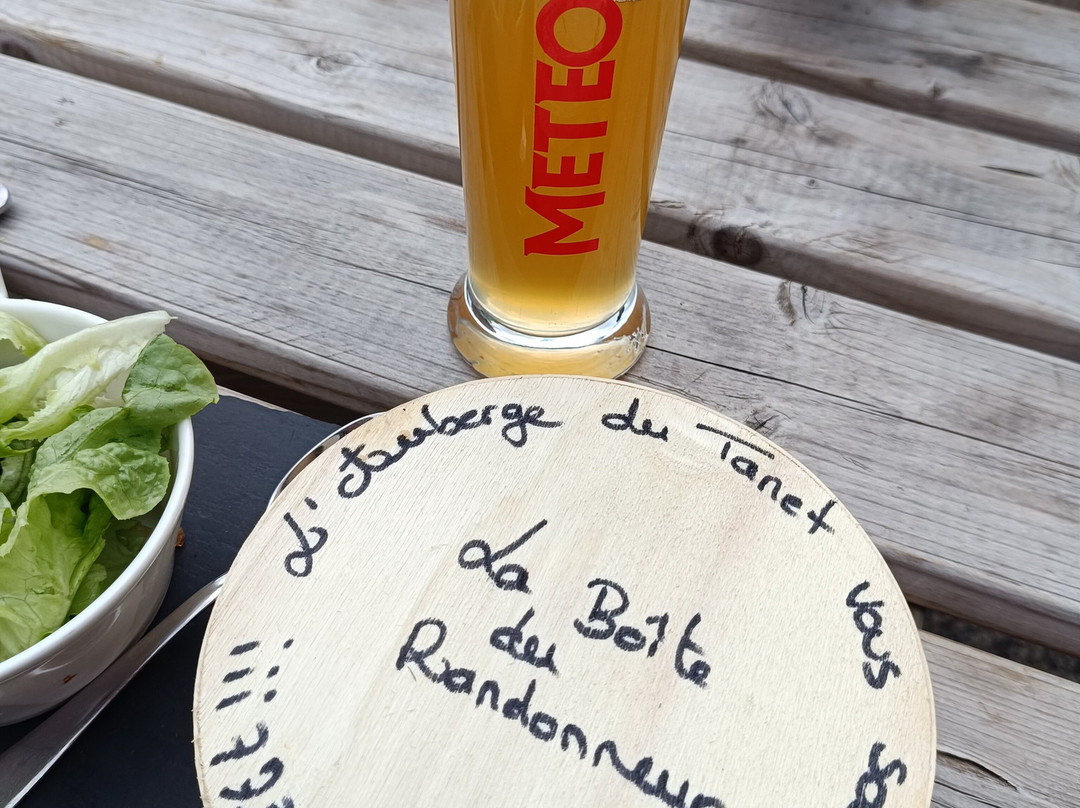 METEOR
L'Auberge du Tanet vous
La Boîte
du
Randonneur
!!!